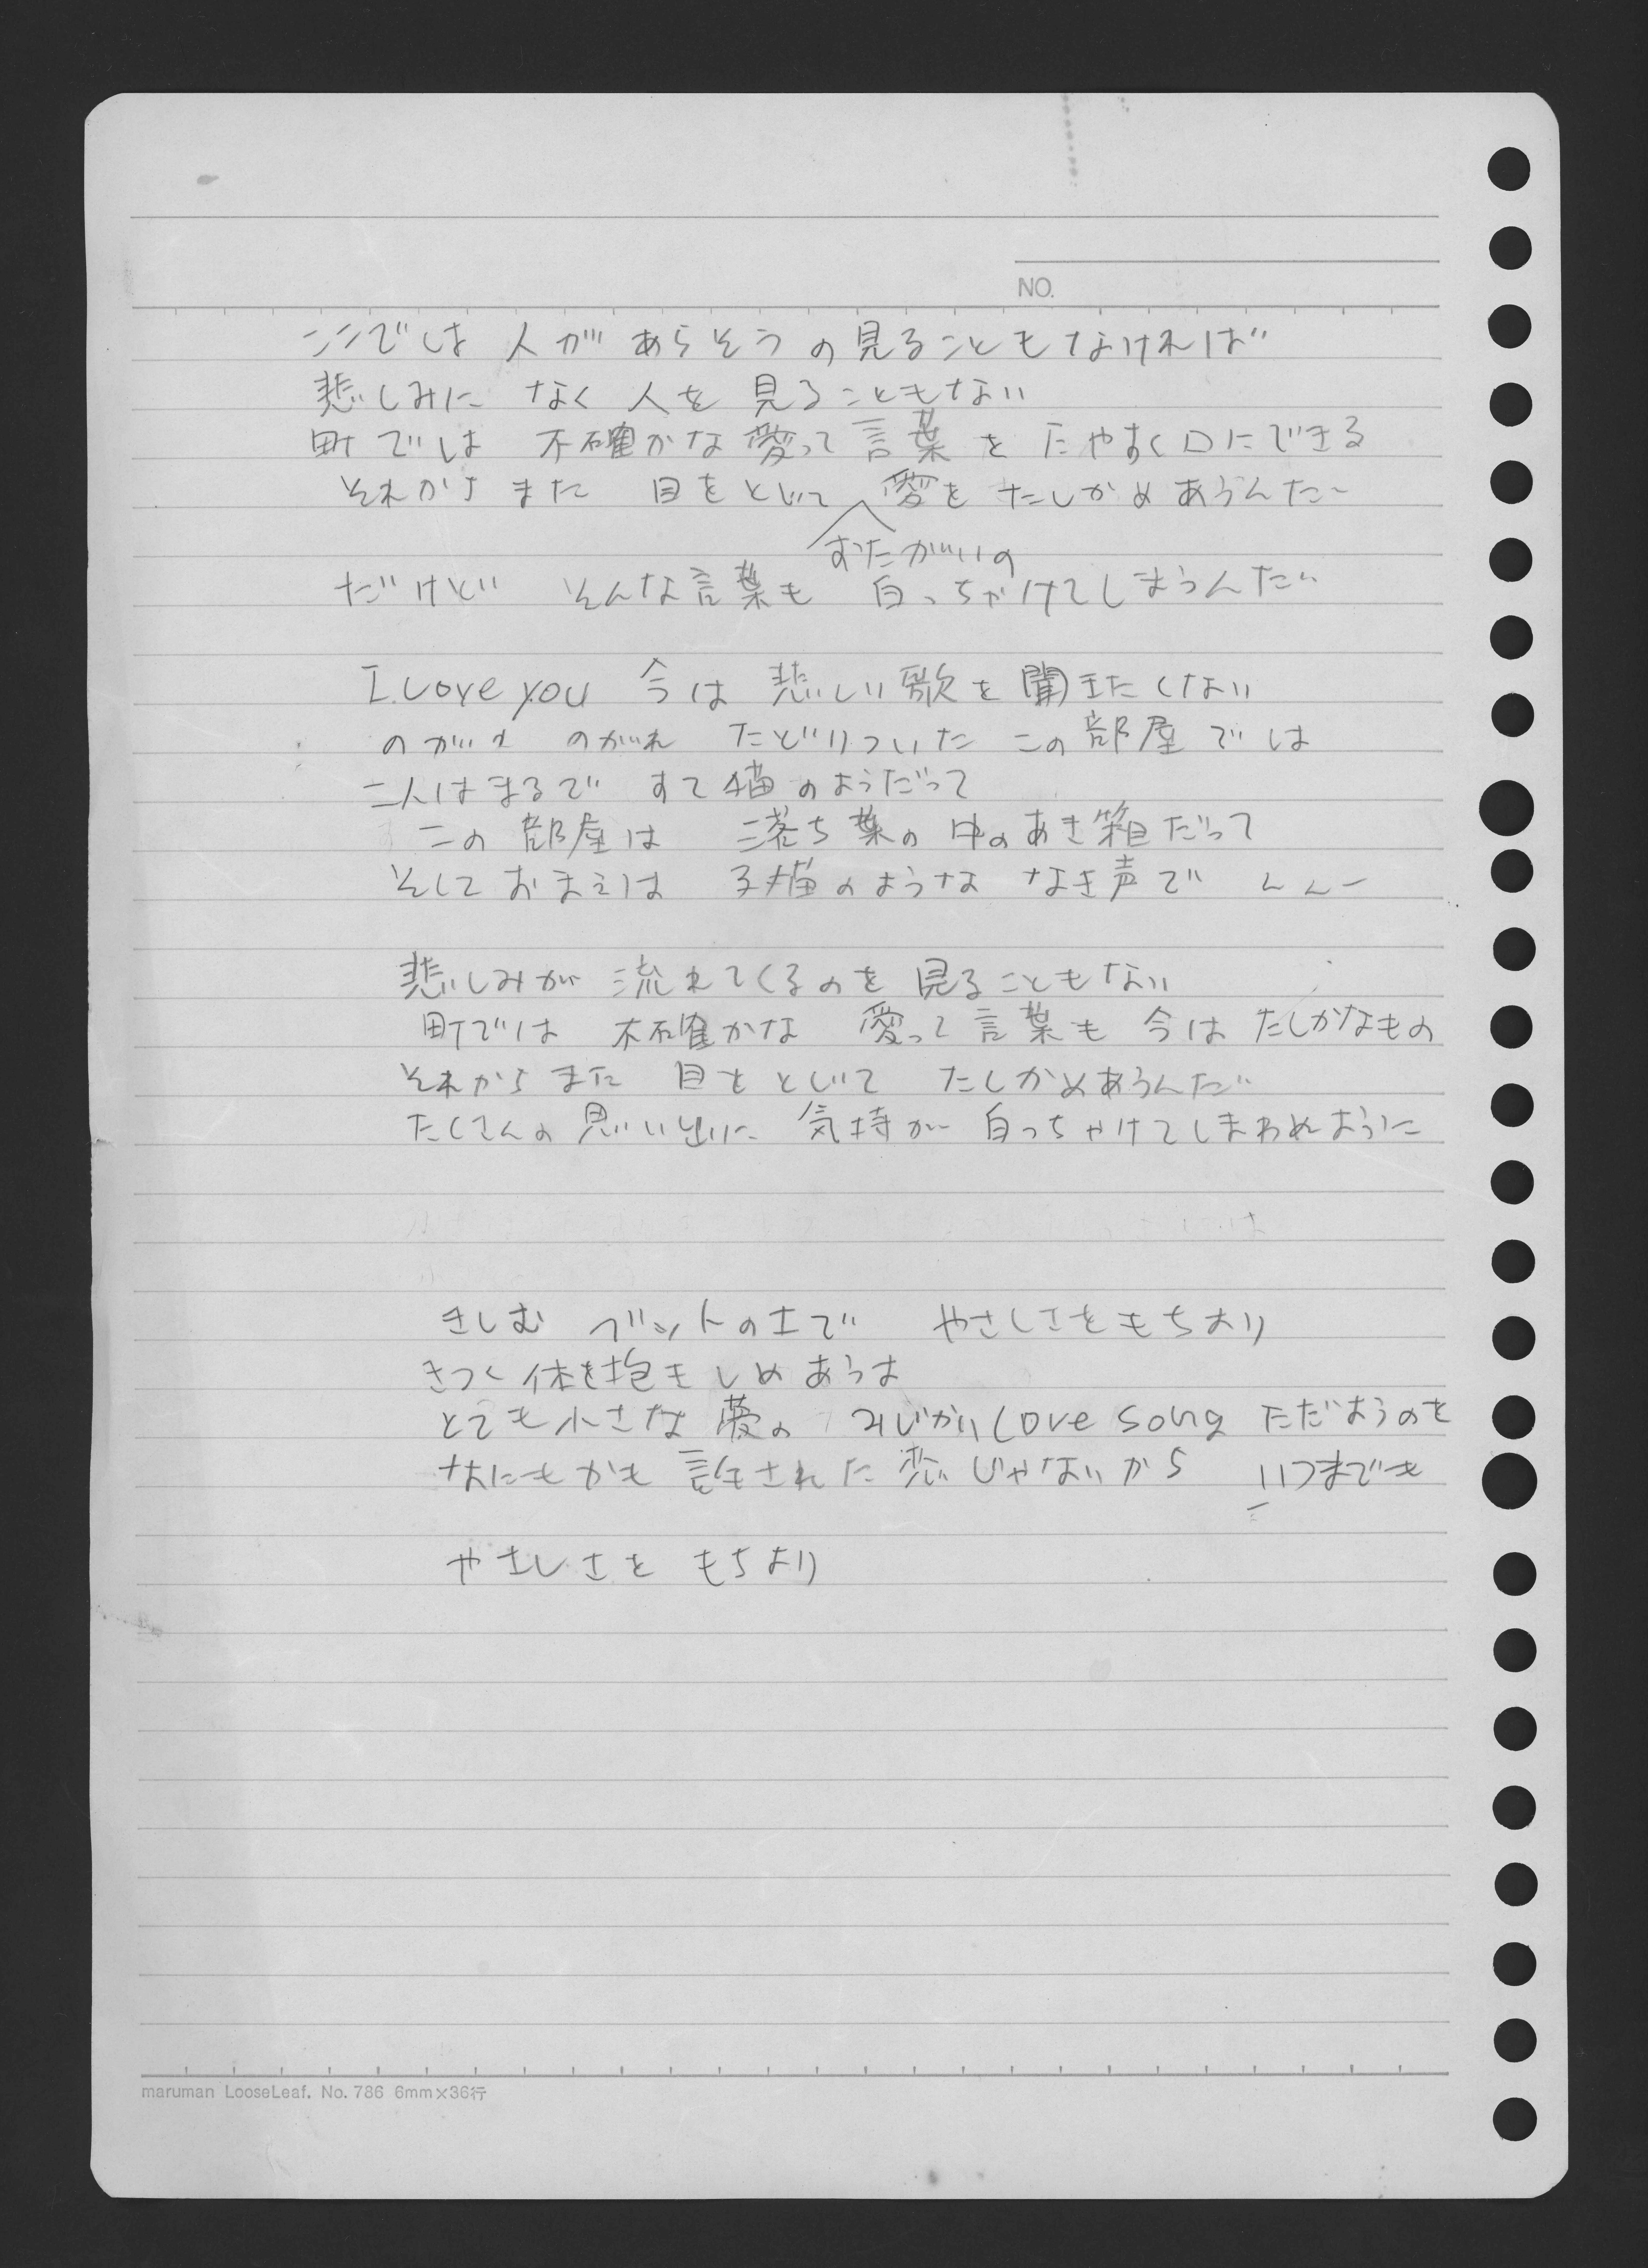 NO.
ここでは 人が あらそうの見ることもなければ
悲しみに なく 人を 見ることもない
町では 不確かな愛って 言葉を たやすく口にできる
それからまた 目をとじて 愛を たしかめあうんだ
おたがいの
だけど そんな言葉も 白っちゃけてしまうんだ
I Love you 今は 悲しい歌を聞きたくない
のがれ のがれ たどりついた この部屋では
二人はまるで すて猫のようだって
この部屋は 落ち葉の中のあき箱だって
そしておまえは 子猫のような なき声で んんー
悲しみが 流れてくるのを 見ることもない
町では 不確かな 愛って言葉も 今は たしかなもの
それからまた 目をとじて たしかめあうんだ
たくさんの思い出に 気持が 白っちゃけてしまわぬように
きしむ ベットの上で やさしさをもちより
きつく体を抱きしめあうは
とても小さな夢の みじかいLove Song ただようのを
なにもかも 許された恋じゃないから いつまでも
やさしさを もちより
maruman LooseLeaf. No. 786 6mm×36行